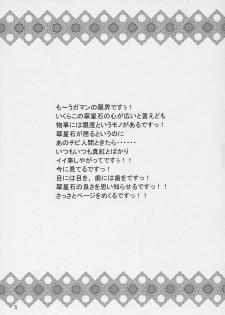 も～うガマンの限界ですぅ！
いくらこの翠星石の心が広いと言えども
物事には限度というモノがあるですっ！
翠星石が居るというのに
あのチビ人間ときたら・・・・・・
いつもいつも真紅とばかり
イイ事しやがってですぅ！！
今に見てるですっ！
目には目を、歯には歯をですっ！
翠星石の良さを思い知らせるですっ！
さっさとページをめくるですぅ！！
5